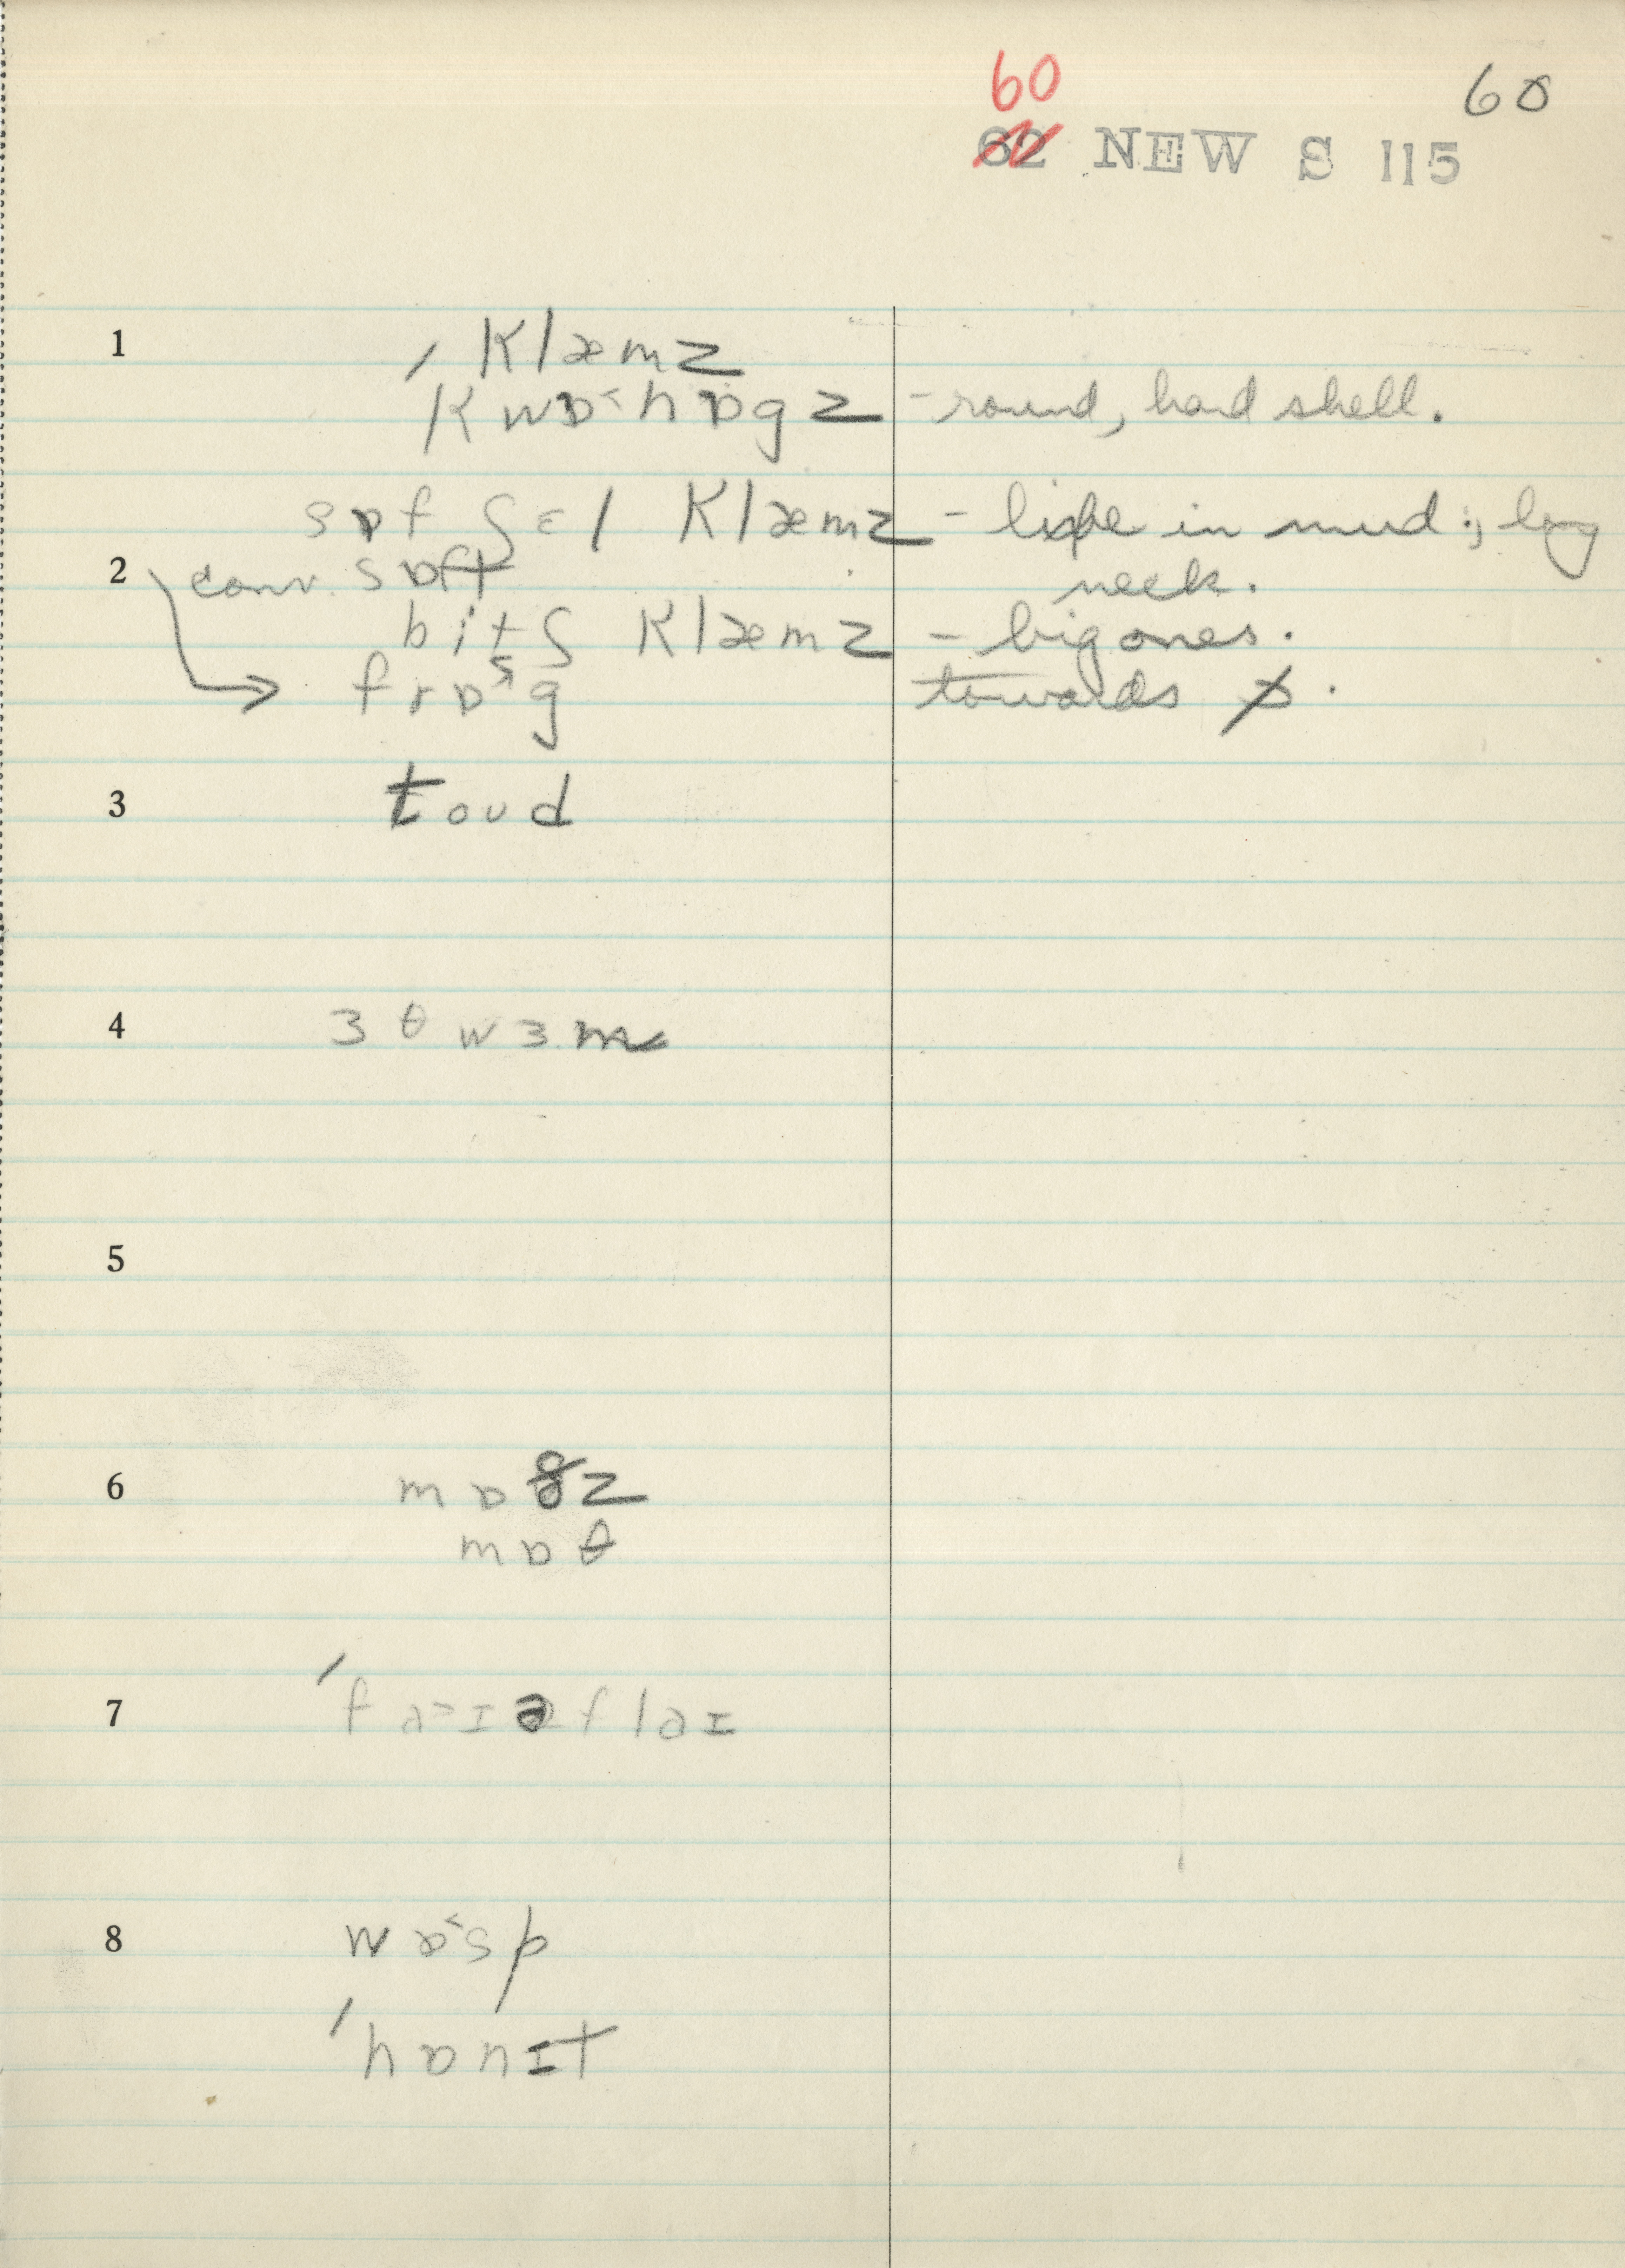 60
60
62 NEW S 115
1 ˈklæmz
kwɒ˂hɒgz - round, hard shell.
sɒf ʃɛl klæmz - live in mud; long
2 conv. sɒft neck.
bitʃ klæmz - big ones.
frɒ˂g towards ɒ.
3 toʊd
4 ɜθwɜm
5
6 mɒðz
mɒθ
7 ˈfa˃ɪəflaɪ
8 wɒ˂sp
ˈhɒnɪt